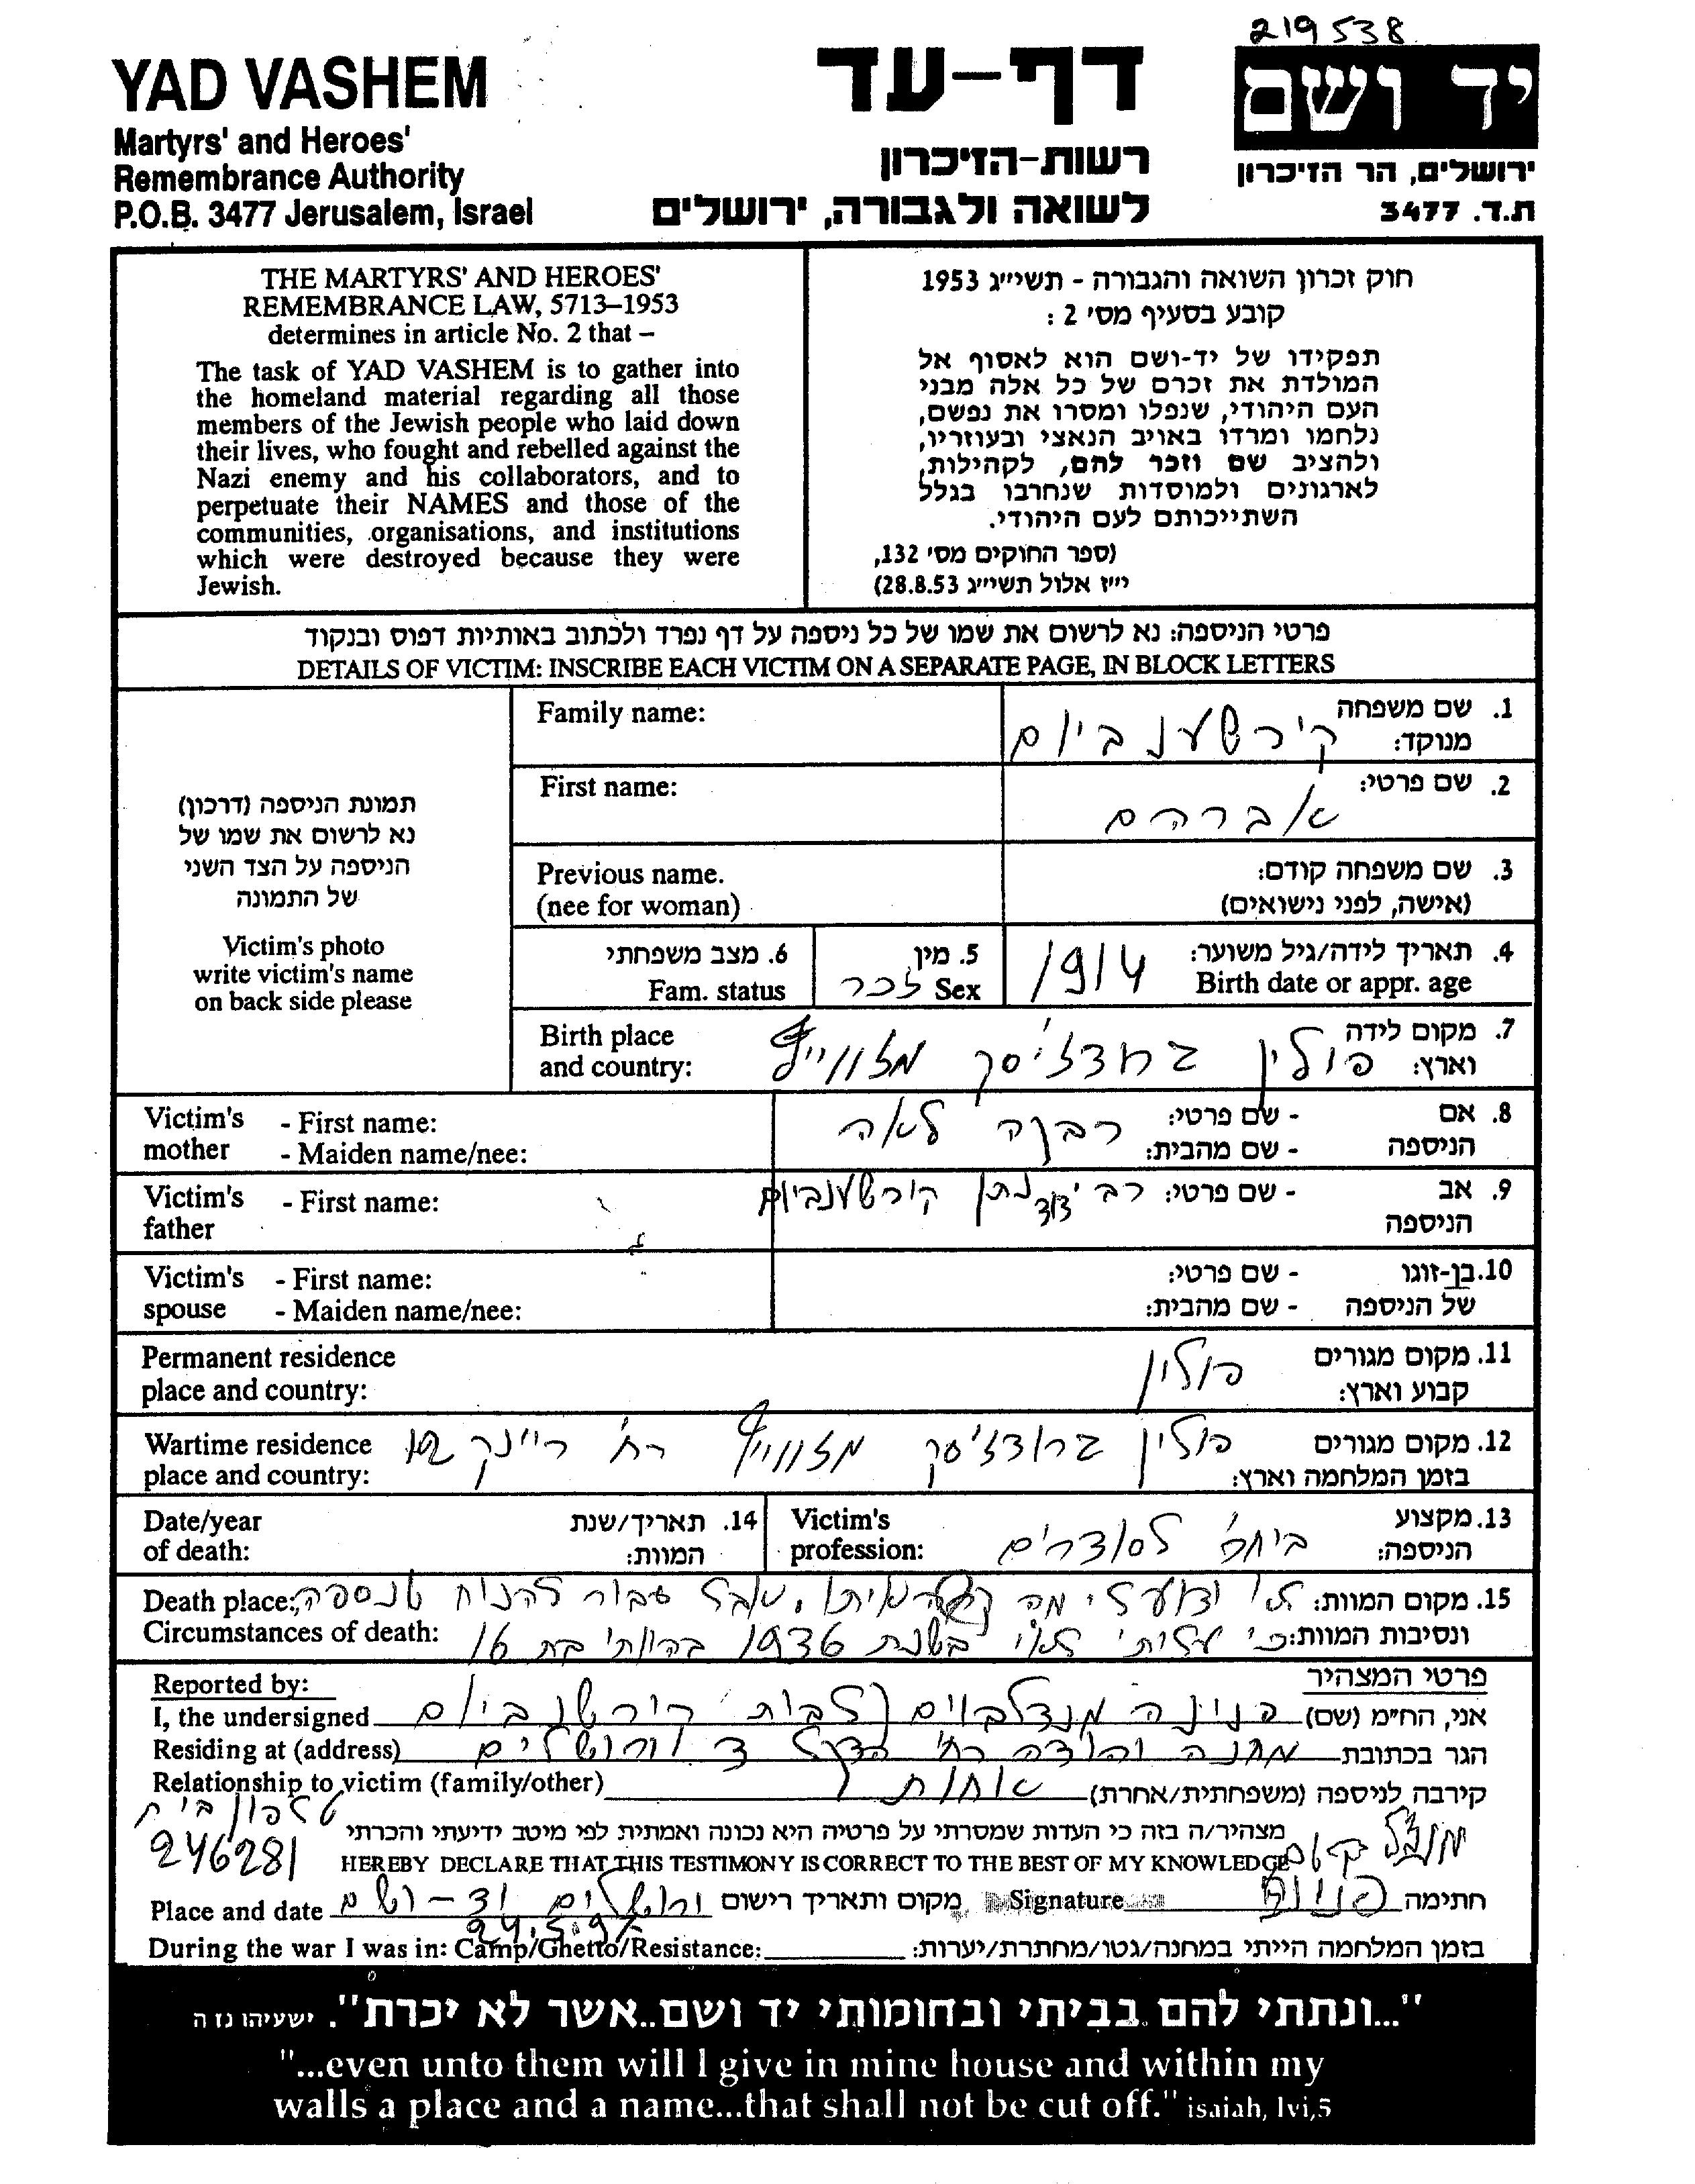 219538
YAD VASHEM
Martyrs' and Heroes'
Remembrance Authority
P.O.B. 3477 Jerusalem, Israel
דף-עד
רשות-הזיכרון
לשואה ולגבורה, ירושלים
יד ושם
ירושלים, הר הזיכרון
ת.ד. 3477
THE MARTYRS' AND HEROES'
REMEMBRANCE LAW, 5713–1953
determines in article No. 2 that –
The task of YAD VASHEM is to gather into
the homeland material regarding all those
members of the Jewish people who laid down
their lives, who fought and rebelled against the
Nazi enemy and his collaborators, and to
perpetuate their NAMES and those of the
communities, organisations, and institutions
which were destroyed because they were
Jewish.
חוק זכרון השואה והגבורה - תשי״ג 1953
קובע בסעיף מס׳ 2 :
תפקידו של יד-ושם הוא לאסוף אל
המולדת את זכרם של כל אלה מבני
העם היהודי, שנפלו ומסרו את נפשם,
נלחמו ומרדו באויב הנאצי ובעוזריו,
ולהציב שם וזכר להם, לקהילות,
לארגונים ולמוסדות שנחרבו בגלל
השתייכותם לעם היהודי.
(ספר החוקים מס׳ 132,
י״ז אלול תשי״ג 28.8.53)
פרטי הניספה: נא לרשום את שמו של כל ניספה על דף נפרד ולכתוב באותיות דפוס ובנקוד
DETAILS OF VICTIM: INSCRIBE EACH VICTIM ON A SEPARATE PAGE, IN BLOCK LETTERS
תמונת הניספה (דרכון)
נא לרשום את שמו של
הניספה על הצד השני
של התמונה
Victim's photo
write victim's name
on back side please
Family name:
1. שם משפחה
מנוקד: קירשענבוים
First name:
2. שם פרטי: אברהם
Previous name.
(nee for woman)
3. שם משפחה קודם:
(אישה, לפני נישואים)
4. תאריך לידה/גיל משוער: 1914
Birth date or appr. age
5. מין
Sex זכר
6. מצב משפחתי
Fam. status
Birth place
and country:
7. מקום לידה
וארץ: פולין
Victim's mother - First name:
- Maiden name/nee:
8. אם הניספה - שם פרטי: רבקה לאה
- שם מהבית:
Victim's father - First name:
9. אב הניספה - שם פרטי: רב דוד נתן קירשענבוים
Victim's spouse - First name:
- Maiden name/nee:
10. בן-זוגו של הניספה - שם פרטי:
- שם מהבית:
Permanent residence
place and country:
11. מקום מגורים
קבוע וארץ: פולין
Wartime residence
place and country:
12. מקום מגורים
בזמן המלחמה וארץ: פולין
Date/year
of death:
14. תאריך/שנת
המוות:
Victim's
profession:
13. מקצוע
הניספה:
Death place:
15. מקום המוות: לא ידוע לי מה אבל סביר להניח שנספה
Circumstances of death:
ונסיבות המוות: כי עליתי בשנת 1936 בהיותי בת 16
Reported by:
פרטי המצהיר
I, the undersigned
אני, הח״מ (שם) פנינה מנדלבוים (לבית קירשנבוים
Residing at (address)
הגר בכתובת מחנה יהודה רח׳ הדקל ירושלים
Relationship to victim (family/other)
קירבה לניספה (משפחתית/אחרת) אחות
טלפון בית
246281
מצהיר/ה בזה כי העדות שמסרתי על פרטיה היא נכונה ואמתית לפי מיטב ידיעתי והכרתי
HEREBY DECLARE THAT THIS TESTIMONY IS CORRECT TO THE BEST OF MY KNOWLEDGE
Place and date
מקום ותאריך רישום ירושלים יד-ושם
Signature
חתימה פנינה
During the war I was in: Camp/Ghetto/Resistance:
בזמן המלחמה הייתי במחנה/גטו/מחתרת/יערות:
"...ונתתי להם בביתי ובחומותי יד ושם..אשר לא יכרת". ישעיהו נז ה
"...even unto them will I give in mine house and within my
walls a place and a name...that shall not be cut off." isaiah, lvi,5